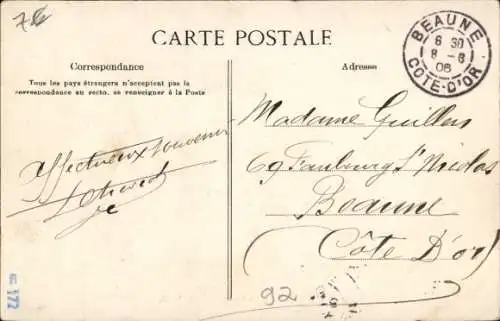 7
CARTE POSTALE
Correspondance
Tous les pays étrangers n'acceptent pas la
correspondance au recto, se renseigner à la Poste
Adresse
BEAUNE
6 30
8 - 8
06
COTE-D'OR
Affectueux Souvenir
Madame Guillon
69 Faubourg St Nicolas
Beaune
(Côte D'or)
92
177